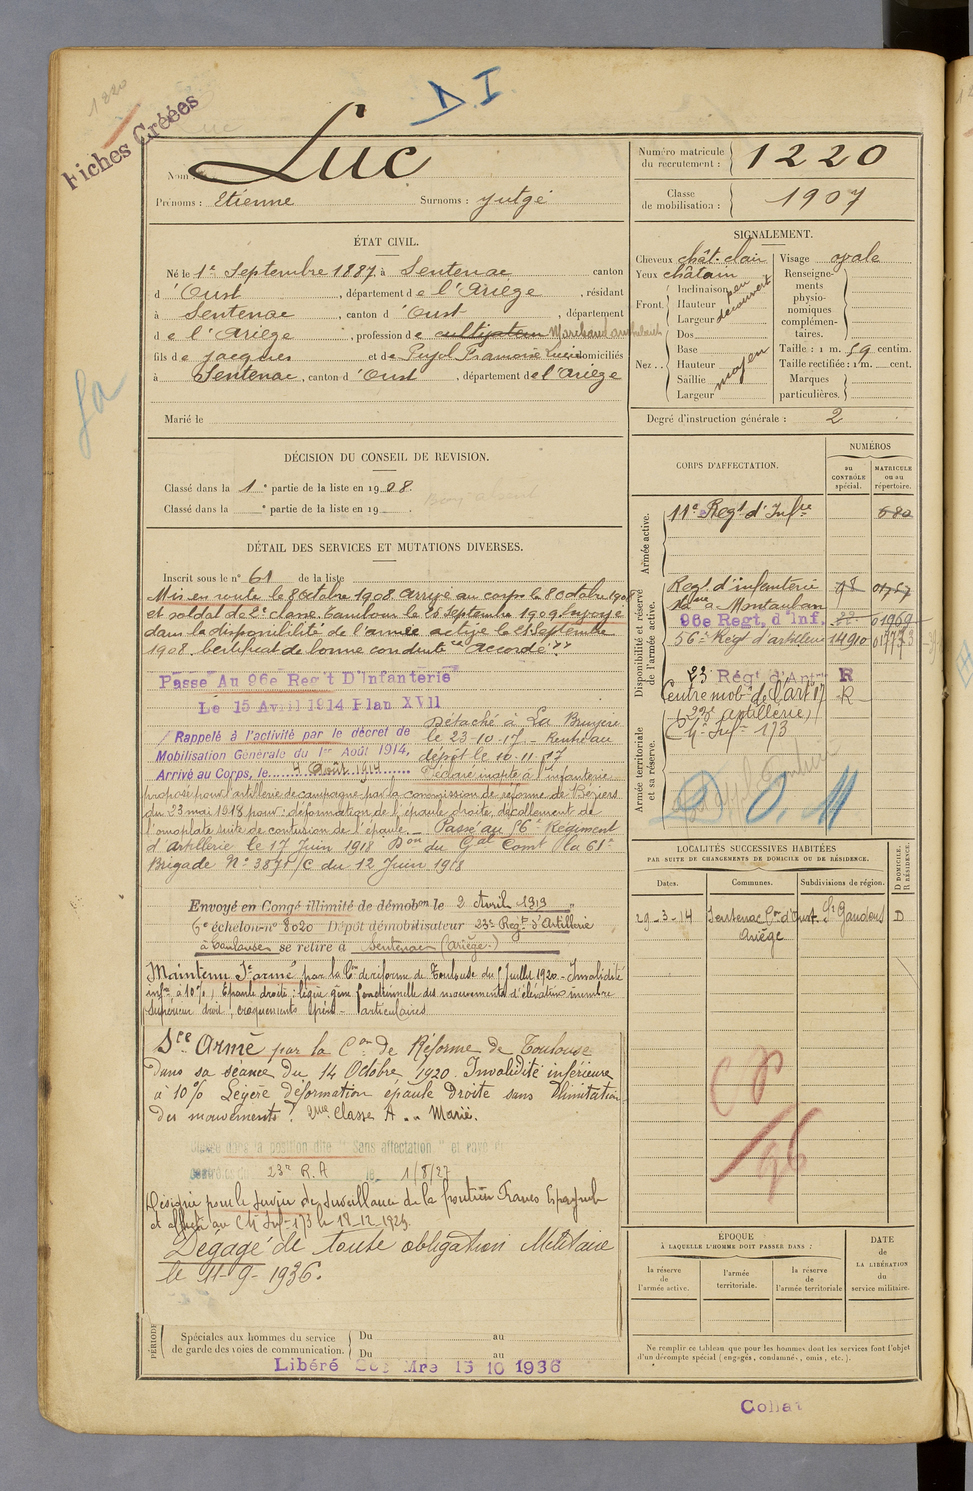 1220
Fiches Créées
D I
Nom : Luc
Prénoms : Etienne Surnoms : yutgé
Numéro matricule du recrutement : 1220
Classe de mobilisation : 1907
ÉTAT CIVIL.
Né le 1er Septembre 1887, à Sentenac canton
d'Oust, département de l'Ariège, résidant
à Sentenac, canton d'Oust, département
de l'Ariège, profession de cultivateur Marchand ambulant
fils de Jacques et de Pujol Framoise Lucie domiciliés
à Sentenac, canton d'Oust, département de l'Ariège
Marié le
SIGNALEMENT.
Cheveux chât. clair Visage ovale
Yeux châtain
Front Inclinaison peu
Hauteur découvert
Largeur
Nez Dos
Base
Hauteur moyen
Saillie
Largeur
Renseignements physionomiques complémentaires.
Taille : 1 m. 59 centim.
Taille rectifiée : 1 m. cent.
Marques particulières.
Degré d'instruction générale : 2
DÉCISION DU CONSEIL DE REVISION.
Classé dans la 1e partie de la liste en 1908.
Classé dans la e partie de la liste en 19 .
Bon absent
DÉTAIL DES SERVICES ET MUTATIONS DIVERSES.
Inscrit sous le n° 61 de la liste
Mis en route le 8 octobre 1908. Arrivé au corps le 8 octobre 1908
et soldat de 2e classe. Tambour le 26 septembre 1909. Envoyé
dans la disponibilité de l'armée active le 25 septembre
1908. Certificat de bonne conduite "accordé".
Passé Au 96e Reg't D'Infanterie
Le 15 Avril 1914 Plan XVII
Rappelé à l'activité par le décret de
Mobilisation Générale du 1er Août 1914.
Arrivé au Corps, le 4 Août 1914
Détaché à La Bruyère
le 23-10-17 - Rentré au
dépôt le 10-11-17
Déclaré inapte à l'infanterie
proposé pour l'artillerie de campagne par la commission de réforme de Béziers
du 23 mai 1918 pour : déformation de l'épaule droite, décollement de
l'omoplate suite de contusion de l'épaule. - Passé au 56e Régiment
d'Artillerie le 17 Juin 1918 Don du Gal Comt la 61e
Brigade N° 3871/C du 12 Juin 1918
Envoyé en Congé illimité de démobon le 2 Avril 1919
6e échelon - n° 8020 Dépôt démobilisateur 23e Regt d'Artillerie
à Toulouse se retire à Sentenac (Ariège)
Maintenu Sce armé par la Con de réforme de Toulouse du 5 Juillet 1920 - Invalidité
infre à 10%, Epaule droite : légère gêne fonctionnelle des mouvements d'élévation membre
supérieur droit, craquements articulaires
Sce Armé par la Con de Réforme de Toulouse
dans sa séance du 14 Octobre 1920. Invalidité inférieure
à 10% Légère déformation épaule droite sans limitation
des mouvements. 2me Classe A .. Marié.
Classé dans la position dite "Sans affectation" et rayé
23e R.A le 1/8/27
Désigné pour le service de surveillance de la frontière Franco Espagnole
et affecté au Ctre Infie 173 le 18-12-1929.
Dégagé de toute obligation Militaire
le 11-9-1936.
PÉRIODE
Spéciales aux hommes du service
de garde des voies de communication.
Du au
Du au
Libéré 15 10 1936
CORPS D'AFFECTATION.
NUMÉROS
au CONTRÔLE spécial.
MATRICULE ou au répertoire.
Armée active.
11e Regt d'Infie 582
Disponibilité et réserve de l'armée active.
Regt d'infanterie
à Montauban
96e Regt. d'Inf. 01969
56e Regt d'artillerie 14910
23 Régt d'Artie R
Centre mobre de l'art 17 R
(23e artillerie)
Ctre Infie 173
Armée territoriale et sa réserve.
D. O. M
LOCALITÉS SUCCESSIVES HABITÉES
PAR SUITE DE CHANGEMENTS DE DOMICILE OU DE RÉSIDENCE.
Dates. Communes. Subdivisions de région.
D DOMICILE. R RÉSIDENCE.
29-3-14 Sentenac Con d'Oust Ariège St Gaudens D
CP
96
ÉPOQUE
À LAQUELLE L'HOMME DOIT PASSER DANS :
la réserve de l'armée active.
l'armée territoriale.
la réserve de l'armée territoriale
DATE de LA LIBÉRATION du service militaire.
Ne remplir ce tableau que pour les hommes dont les services font l'objet
d'un décompte spécial (engagés, condamnés, omis, etc.).